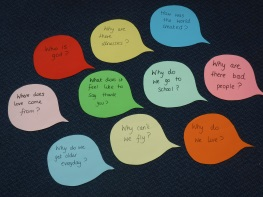 Who is
god?
Why are
there
?
How was
the world
created?
Where does
love come
from?
What does it
feel like to
say thank
you?
Why do
we go to
school?
Why are
there bad
people?
Why do we
get older
everyday?
Why can't
we fly?
Why do
we love?